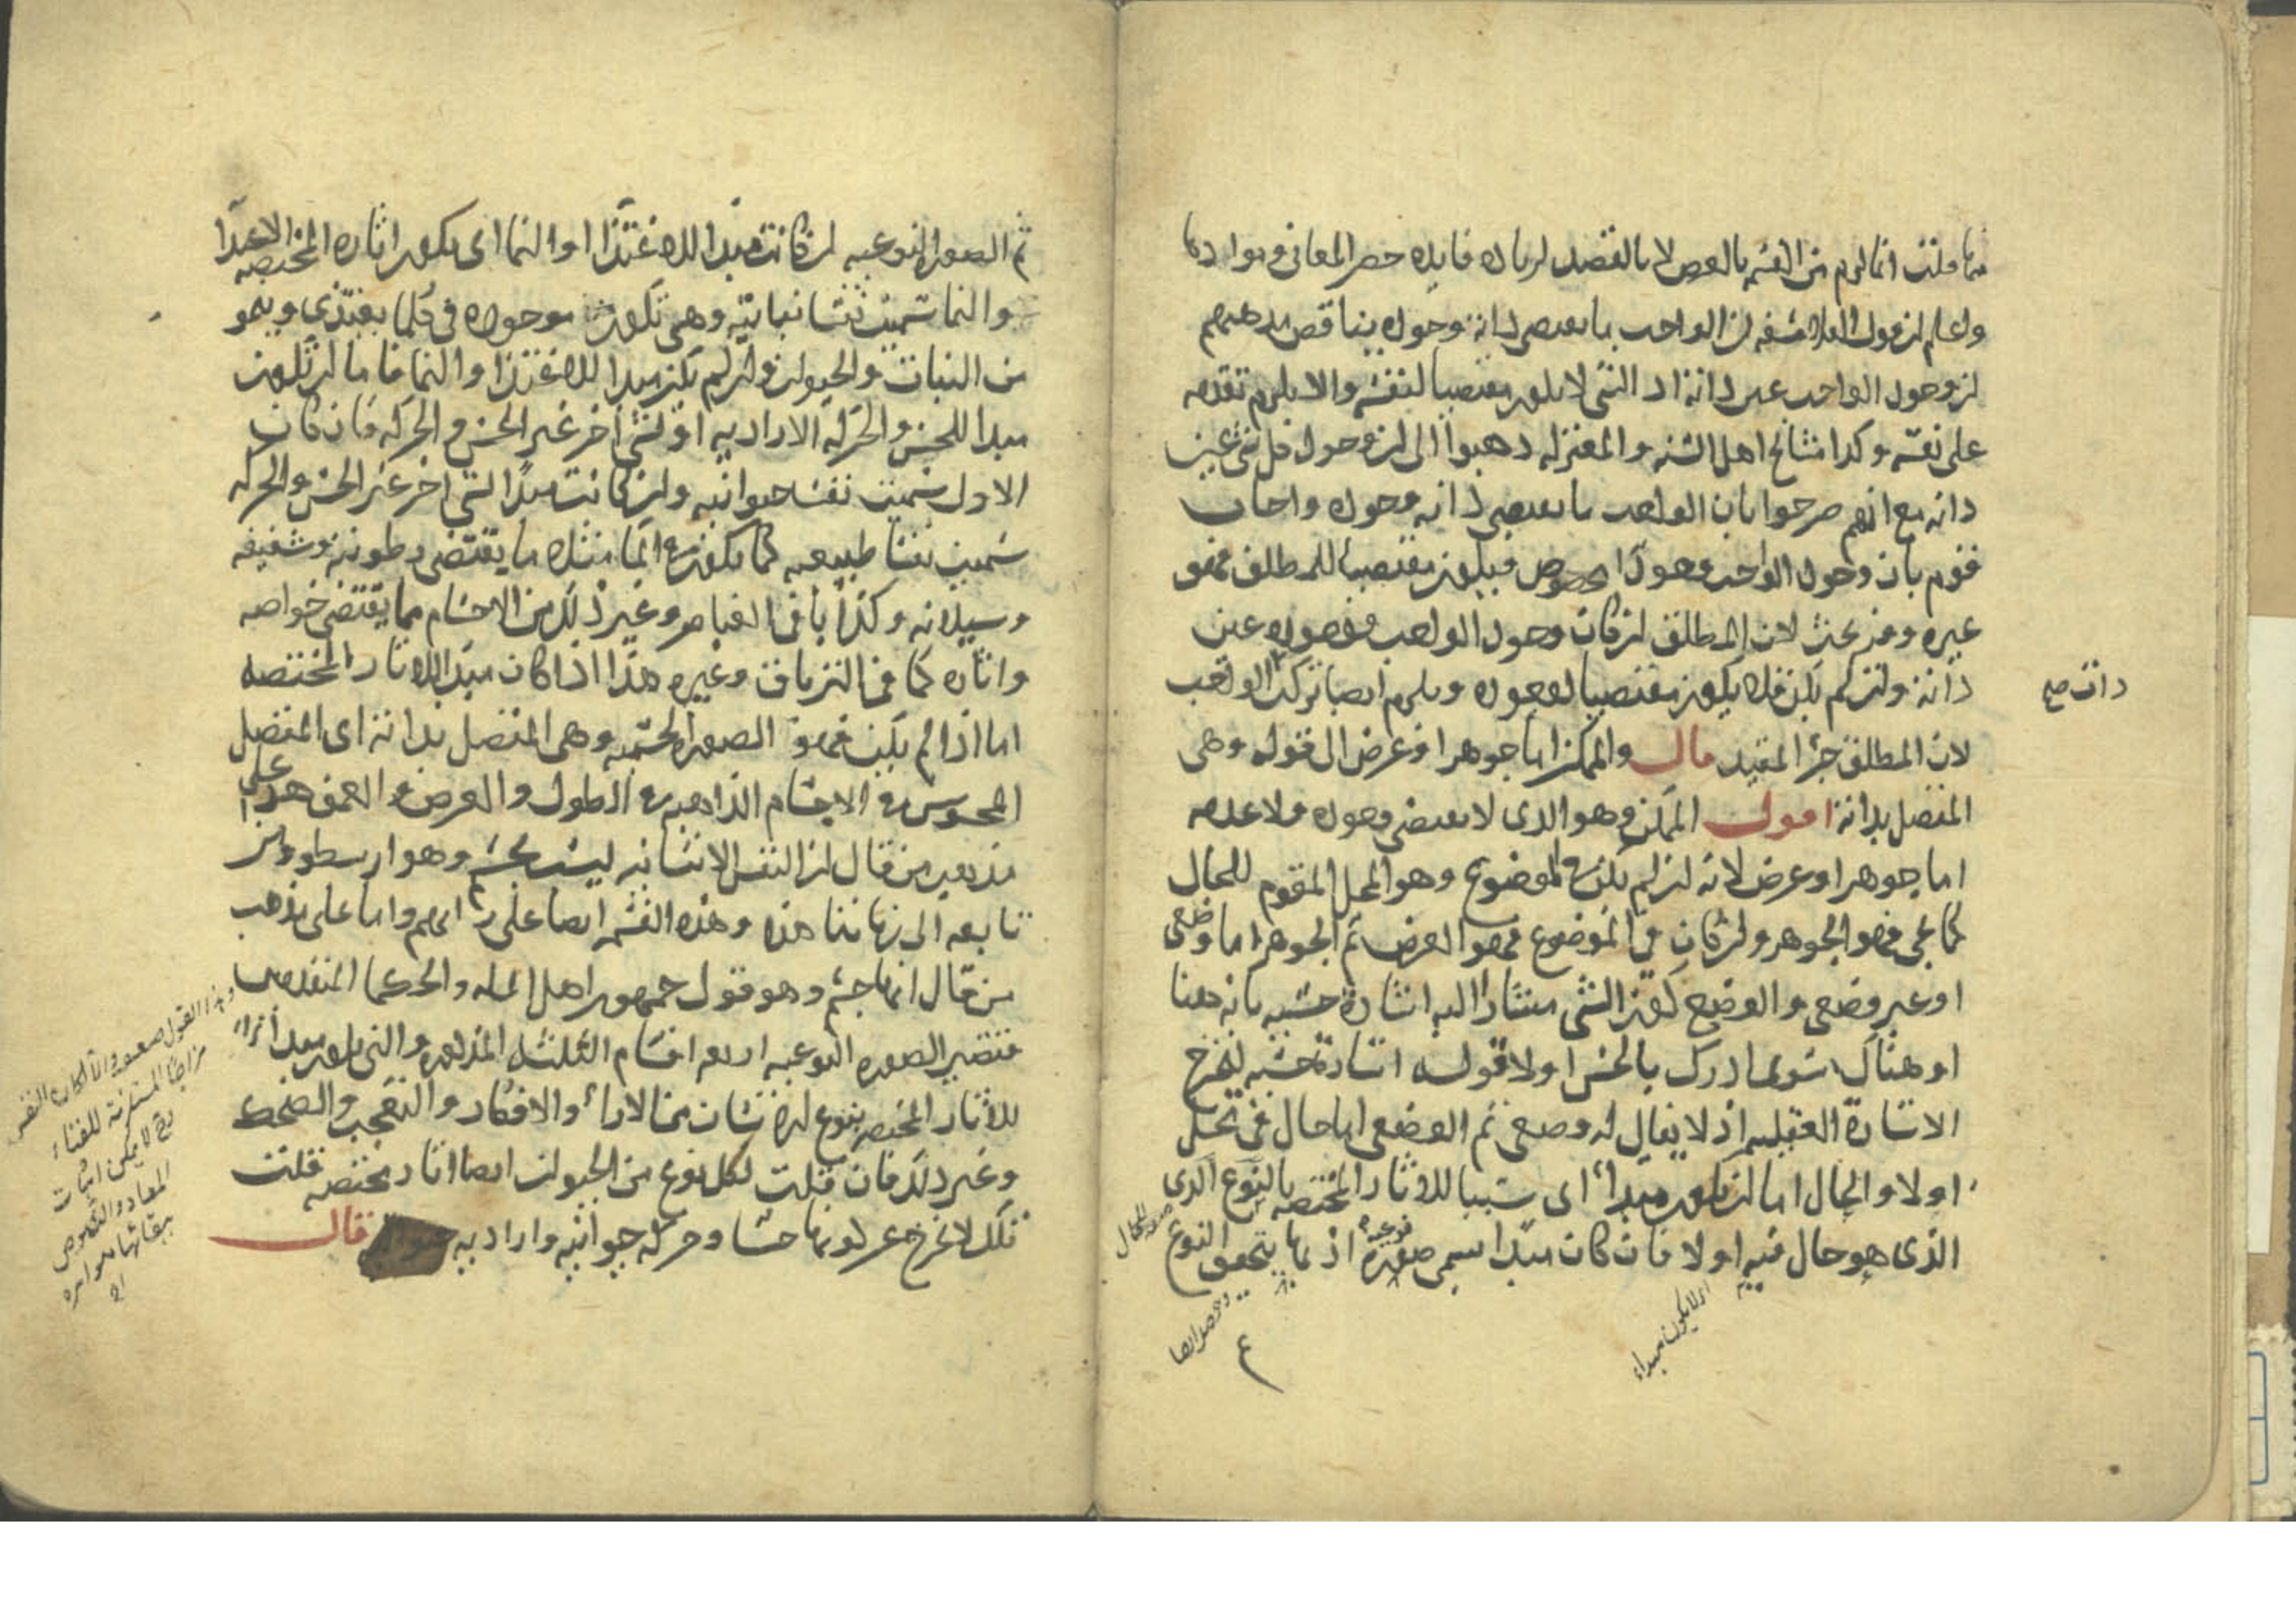 منها قلت انما لزم من القسم بالعرض لا بالقصد لزياده فايده حصر المعانى وموادها
واعلم ان قول الفلاسفه ان الواجب ما يقتضى ذاته وجوده يناقض مذهبهم
ان وجود الواجب عين ذاته اذ الشى لا يكون مقتضيا لنفسه والا يلزم تقدمه
على نفسه وكذا مشايخ اهل السنه والمعتزله ذهبوا الى ان وجود كل شى عين
ذاته مع انهم صرحوا بان الواجب ما يقتضى ذاته وجوده واجاب
قوم بان وجود الواجب وجود مخصوص فيكون مقتضيا للمطلق فهو
غيره وفيه بحث لان المطلق ان كان وجود الواجب فوجوده عين
ذاته وان لم يكن فلا يكون مقتضيا لوجوده ويلزم ايضا تركب الواجب
لان المطلق جزء المقيد قال والممكن اما جوهر او عرض الى قوله وهى
المتصل بذاته اقول الممكن وهو الذى لا يقتضى وجوده ولا عدمه
اما جوهر او عرض لانه ان لم يكن فى الموضوع وهو المحل المقوم للحال
كما يجى فهو الجوهر وان كان فى الموضوع فهو العرض ثم الجوهر اما وضعى
او غير وضعى والوضع كون الشى مشارا اليه اشارة حسيه بانه هنا
او هناك سواء ادرك بالحس اولا قوله اشارة حسيه ليخرج
الاشارة العقليه اذ لا يقال له وضعى ثم الوضعى اما حال فى محل
اولا والحال اما ان يكون مبداء اى سببا للاثار المختصه بالنوع الذى
الذى هو حال فيه اولا فان كان مبدا يسمى صورة نوعية اذ بها يتحقق النوع
ذات صح
اى لا يكون مبداء
ثم الصورة النوعيه ان كانت مبدا للاغتذا او النما اى يكون اثاره المختصه الاغتذا
والنما سميت نفسا نباتيه وهى تكون موجوده فى كلما يغتذى وينمو
من النبات والحيوان وان لم يكن مبدا للاغتذا والنما فاما ان تكون
مبدا للحس والحركه الاراديه او لشى اخر غير الحس والحركه فان كان
الاول سميت نفسا حيوانيه وان كانت مبدا لشى اخر غير الحس والحركه
سميت نفسا طبيعيه كما يكون فى الما مثلا ما يقتضى رطوبته وشفيفه
وسيلانه وكذا باقى العناصر وغير ذلك من الاجسام مما يقتضى خواصه
واثاره كما فى الترياق وغيره هذا اذا كان مبدا للاثار المختصه
اما اذا لم يكن فهو الصورة الجسميه وهى المتصل بذاته اى المتصل
المحسوس فى الاجسام الذاهبه فى الطول والعرض والعمق هذا على
مذهب من قال ان النفس الانسانيه ليست بجسم وهو ارسطو ومن
تابعه الى زماننا هذا وهذه القسمه ايضا على رايهم واما على مذهب
من قال انها جسم وهو قول جمهور اهل المله والحكما المتقدمين
فتصير الصورة النوعيه اربعه اقسام الثلثه المذكوره والتى يكون مبدا
للاثار المختصه بنوع الانسان من الاراء والافكار والتعجب والضحك
وغير ذلك فان قلت لكل نوع من الحيوان ايضا اثار مختصه قلت
تلك لا تخرج عن كونها حسا وحركه حيوانيه واراديه قال